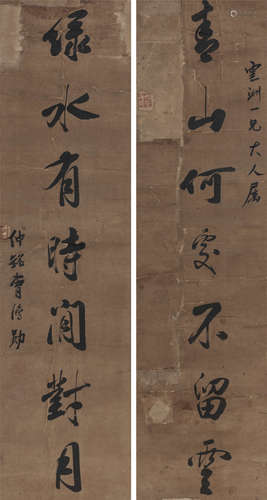 雲洲一兄大人屬
青山何處不留雲
綠水有時閒對月
仲銘曹鴻勛